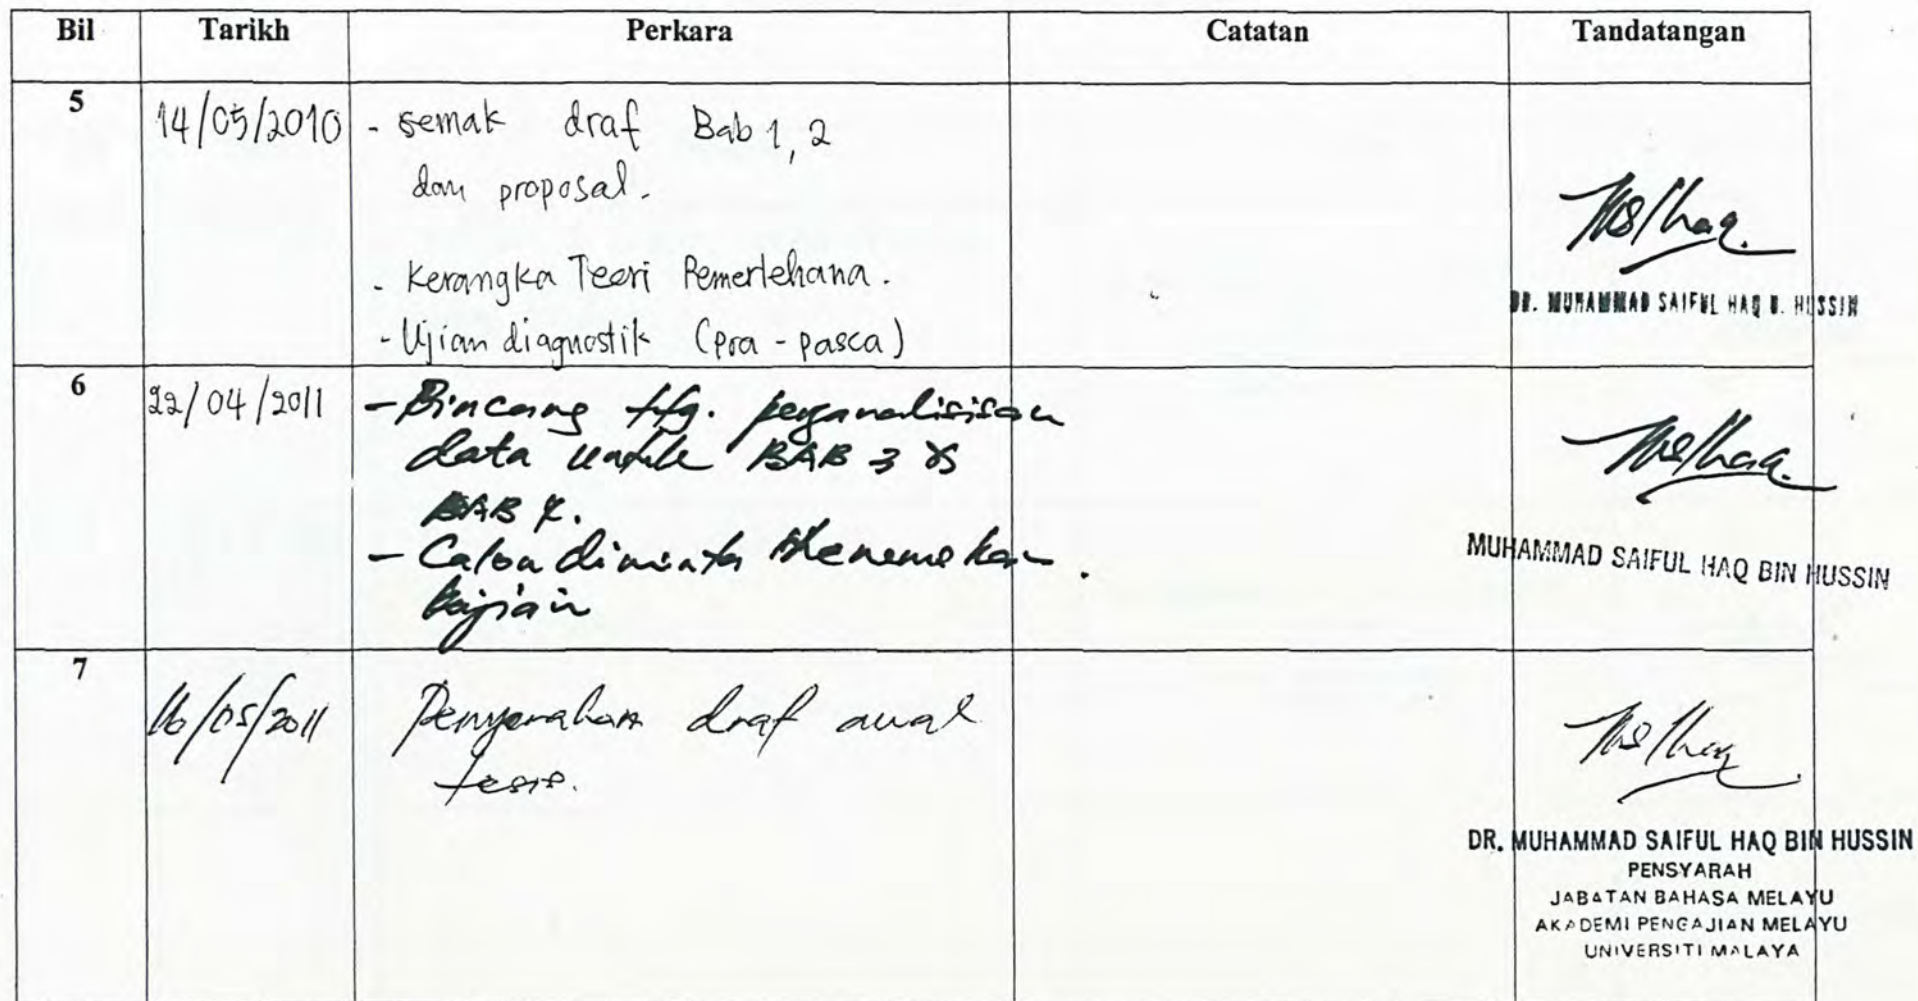 Bil Tarikh Perkara Catatan Tandatangan
5 14/05/2010 - semak draf Bab 1, 2
dan proposal.
- Kerangka Teori Pemerlehana.
- Ujian diagnostik (pra - pasca)
DR. MUHAMMAD SAIFUL HAQ B. HUSSIN
6 22/04/2011 - Bincang ttg. penganalisisan
data untuk BAB 3 &
BAB 4.
- Calon diminta
kajian
MUHAMMAD SAIFUL HAQ BIN HUSSIN
7 16/05/2011 Penyerahan draf awal
tesis.
DR. MUHAMMAD SAIFUL HAQ BIN HUSSIN
PENSYARAH
JABATAN BAHASA MELAYU
AKADEMI PENGAJIAN MELAYU
UNIVERSITI MALAYA